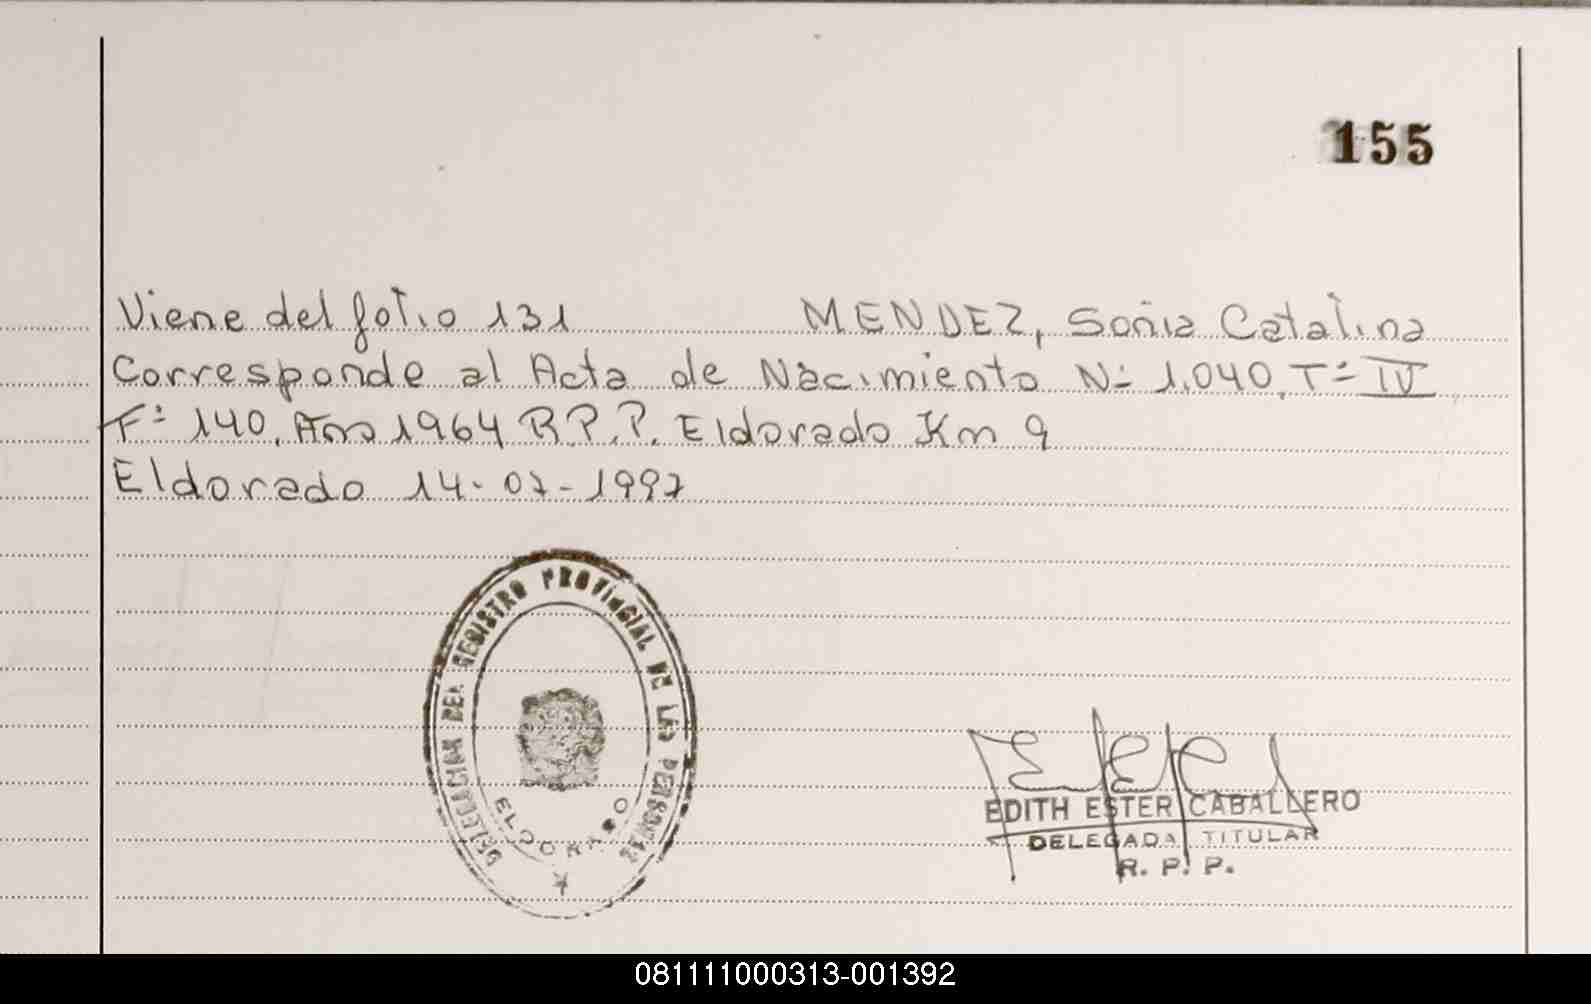 155
Viene del folio 131 MENDEZ, Sonia Catalina
Corresponde al Acta de Nacimiento Nº 1.040, Tº IV
Fº 140, Año 1964 R.P.P. Eldorado Km 9
Eldorado 14-07-1997
DELEGACION DEL REGISTRO PROVINCIAL DE LAS PERSONAS
ELDORADO
EDITH ESTER CABALLERO
DELEGADA TITULAR
R. P. P.
081111000313-001392